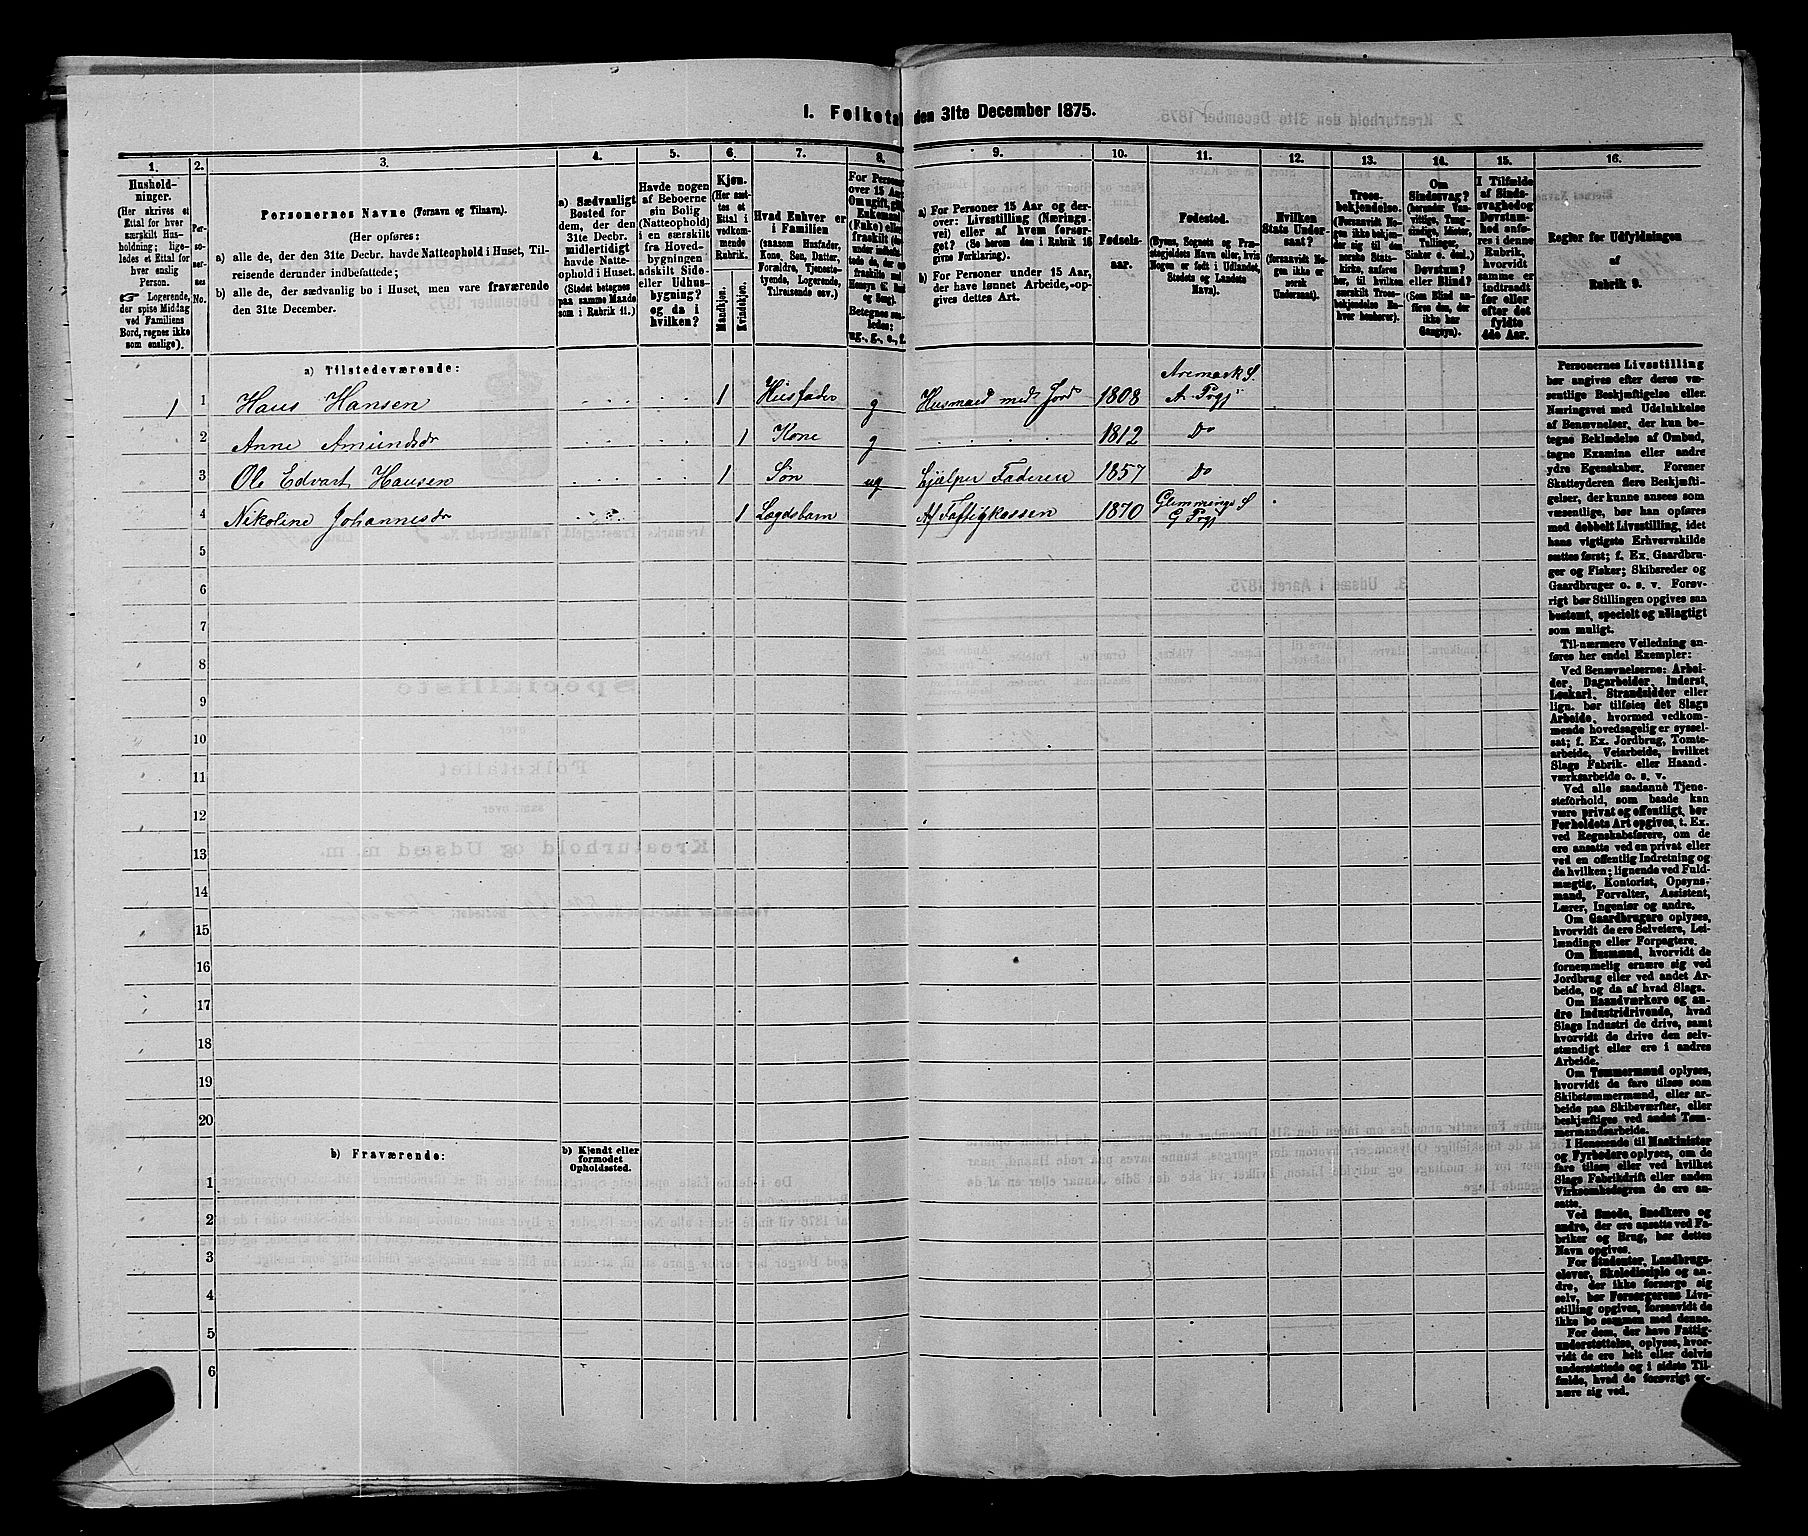 1. Folketal den 31te December 1875.
1. 2. 3. 4. 5. 6. 7. 8. 9. 10. 11. 12. 13. 14. 15. 16.
Hushold-
ninger.
(Her skrives et
Ettal for hver
særskilt Hus-
holdning; lige-
ledes et Ettal for
hver enslig
Person.
☞ Logerende,
der spise Middag
ved Familiens
Bord, regnes ikke
som enslige).
Personernes Navne (Fornavn og Tilnavn).
(Her opføres:
a) alle de, der den 31te Decbr. havde Natteophold i Huset, Til-
reisende derunder indbefattede;
b) alle de, der sædvanlig bo i Huset, men vare fraværende
den 31te December.
a) Sædvanligt
Bosted for
dem, der den
31te Decbr.
midlertidigt
havde Natte-
ophold i Huset.
(Stedet betegnes
paa samme Maade
som i Rubrik 11.)
Havde nogen
af Beboerne
sin Bolig
(Natteophold)
i en særskilt
fra Hoved-
bygningen
adskilt Side-
eller Udhus-
bygning?
og da i
hvilken?
Kjøn.
(Her sættes
et
Ettal i
vedkom-
mende
Rubrik.
Mandkjøn.
Kvindekjøn.
Hvad Enhver er
i Familien
(saasom Husfader,
Kone, Søn, Datter,
Forældre, Tjeneste-
tyende, Logerende,
Tilreisende osv.)
a) For Personer 15 Aar og der-
over: Livsstilling (Nærings-
vei) eller af hvem forsør-
get? (Se herom den i Rubrik 16
givne Forklaring).
b) For Personer under 15 Aar,
der have lønnet Arbeide, op-
gives dettes Art.
Fødsels-
aar.
Fødested.
(Byens, Sognets og Præ-
stegjeldets Navn eller, hvis
Nogen er født i Udlandet,
Stedets og Landets
Navn).
Hvilken
Stats Under-
saat?
(forsaavidt No-
gen ikke er
norsk
Undersaat).
Troes-
bekjendelse.
(Forsaavidt No-
gen ikke bekjen-
der sig til den
norske Stats-
kirke, anføres
her, til hvilken
særskilt Troes-
bekjendelse En-
hver henhører).
Om
Sindssvag?
Døvstum?
eller Blind?
I Tilfælde
af Sinds-
svaghed og
Døvstum-
hed anfø-
res i denne
Rubrik,
hvorvidt
samme er
indtraadt
før eller
efter det
fyldte
4de Aar.
Regler for Udfyldningen
af
Rubrik 9.
a) Tilstedeværende:
1 1 Hans Hansen 1 Husfader g Husmand med Jord 1808 Aremark S. A. Prgj
2 Anne Amundsdr 1 Kone g 1812 Do
3 Ole Edvart Hansen 1 Søn ug Hjælper Faderen 1857 Do
4 Nikoline Johannesdr 1 Lægdsbarn Af Fattigkassen 1870 Glemminge S G Prgj
5
6
7
8
9
10
11
12
13
14
15
16
17
18
19
20
b) Fraværende:
b) Kjendt eller
formodet
Opholdssted.
1
2
3
4
5
6
Personernes Livsstilling
bør angives efter deres væ-
sentlige Beskjæftigelse eller
Næringsvei med Udelukkelse
af Benævnelser, der kun be-
tegne Beklædelse af Ombud,
tagne Examina eller andre
ydre Egenskaber. Forener
Skatteyderen flere Beskjæfti-
gelser, der kunne ansees som
væsentlige, bør han opføres
med dobbelt Livsstilling, idet
hans vigtigste Erhvervskilde
sættes først; f. Ex. Gaardbru-
ger og Fisker; Skibsreder og
Gaardbruger o. s. v. Forøv-
rigt bør Stillingen opgives saa
bestemt, specielt og nøiagtigt
som muligt.
Til nærmere Veiledning an-
føres her endel Exempler:
Ved Benævnelserne: Arbei-
der, Dagarbeider, Inderst,
Løskarl, Strandsidder eller
lign. bør tilføies det Slags
Arbeide, hvormed vedkom-
mende hovedsagelig er syssel-
sat; f. Ex. Jordbrug, Tomte-
arbeide, Veiarbeide, hvilket
Slags Fabrik- eller Haand-
værksarbeide o. s. v.
Ved alle saadanne Tjene-
steforhold, som baade kan
være privat og offentligt, bør
Forholdets Art opgives, t. Ex.
ved Regnskabsførere, om de
ere ansatte ved en privat eller
ved en offentlig Indretning og
da hvilken; lignende ved Fuld-
mægtig, Kontorist, Opsyns-
mand, Forvalter, Assistent,
Lærer, Ingeniør og andre.
Om Gaardbrugere oplyses,
hvorvidt de ere Selveiere, Lei-
lændinge eller Forpagtere.
Om Husmænd, hvorvidt de
fornemmelig ernære sig ved
Jordbrug eller ved andet Ar-
beide, og da af hvad Slags.
Om Haandværkere og an-
dre Industridrivende, hvad
Slags Industri de drive, samt
hvorvidt de drive den selv-
stændigt eller ere i andres
Arbeide.
Om Tømmermænd oplyses,
hvorvidt de fare tilsøs som
Skibstømmermænd, eller ar-
beide paa Skibsværfter, eller
beskjæftiges ved andet Tøm-
mermandsarbeide.
I Henseende til Maskinister
og Fyrbødere oplyses, om de
fare tilsøs eller ved hvilket
Slags Fabrikdrift eller anden
Virksomhedsgren de ere an-
satte.
Ved Smede, Snedkere og
andre, der ere ansatte ved Fa-
briker og Brug, bør dettes
Navn opgives.
For Studenter, Landbrugs-
elever, Skoledisciple og an-
dre, der ikke forsørge sig
selv, bør Forsørgerens Livs-
stilling opgives, forsaavidt de
ikke bo sammen med denne.
For dem, der have Fattig-
understøttelse, oplyses, hvor-
vidt de ere helt eller delvis
understøttede og i sidste Til-
fælde, hvad de forøvrigt er-
nære sig ved.